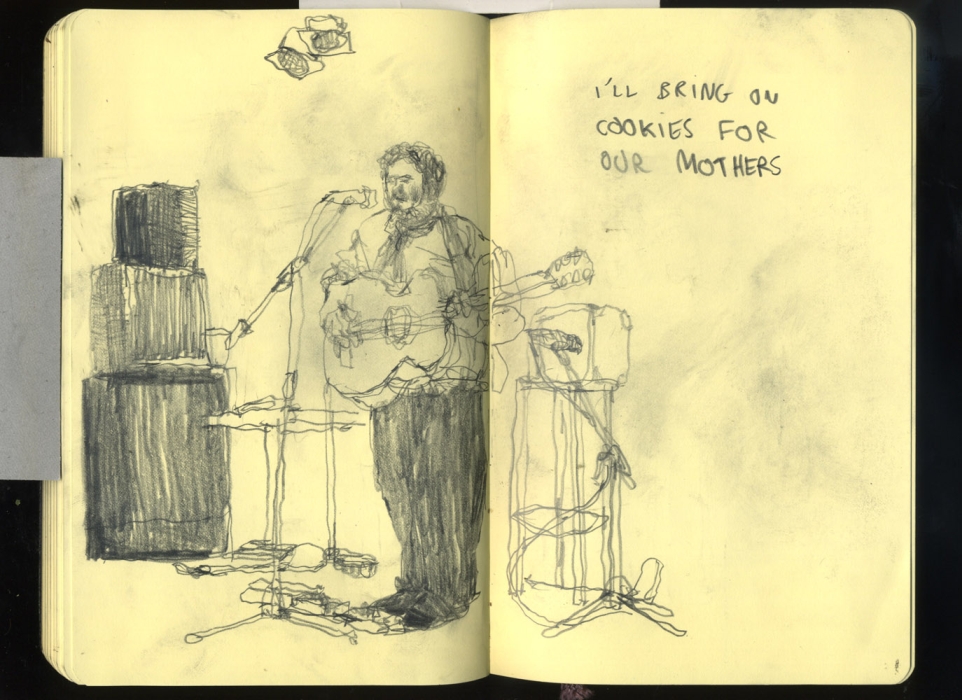 I'LL BRING ON
COOKIES FOR
OUR MOTHERS